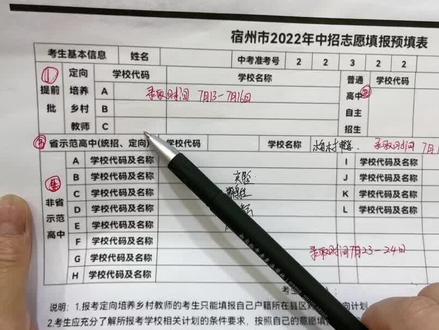 宿州市2022年中招志愿填报预填表
考生基本信息 姓名 中考准考号 2 2 3 2 2
① 定向 学校代码 学校名称 普通
提前 培养 A 录取时间 7月13-7月16日 高中
批 乡村 B 自主
教师 C 招生
③ 省示范高中(统招、定向) 学校代码 学校名称 录取时间 7月
④ A 学校代码及名称 I 学校
非 B 学校代码及名称 实验 J 学校
省 C 学校代码及名称 K 学校
示 D 学校代码及名称 L 学校
范 E 学校代码及名称
高 F 学校代码及名称
中 G 学校代码及名称 录取时间7月23-24日
H 学校代码及名称
说明：1.报考定向培养乡村教师的考生只能填报自己户籍所在县区
2.考生应充分了解所报考学校相关计划的条件要求，按照自己的意愿填